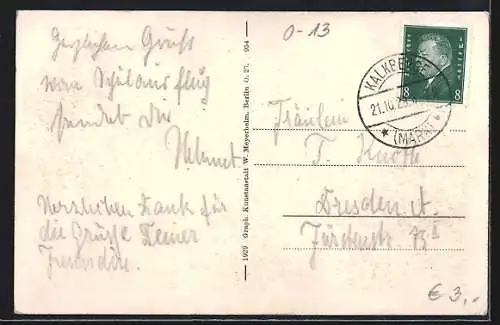 0-13
Herzlichen Gruß
vom Schulausflug
sendet dir
Helmut
Herzlichen Dank für
die Grüße Deiner
1929 Graph. Kunstanstalt W. Meyerheim, Berlin O. 27. 954
Deutsches Reich
8 8
KALKBERGE
21.10.29
* (MARK) *
Fräulein
T.
Dresden A.
Fürstenstr
€ 3,-